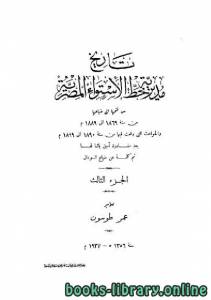 تاريخ
مديرية خط الاستواء المصرية
من فتحها إلى ضياعها
من سنة ١٨٦٩ إلى ١٨٨٩ م
والحوادث التي وقعت فيها من سنة ١٨٩٠ إلى ١٨٩٩ م
بعد مغادرة أمين باشا لها
الجزء الثالث
عمر طوسون
سنة ١٣٥٦ هـ - ١٩٣٧ م
books-library.online